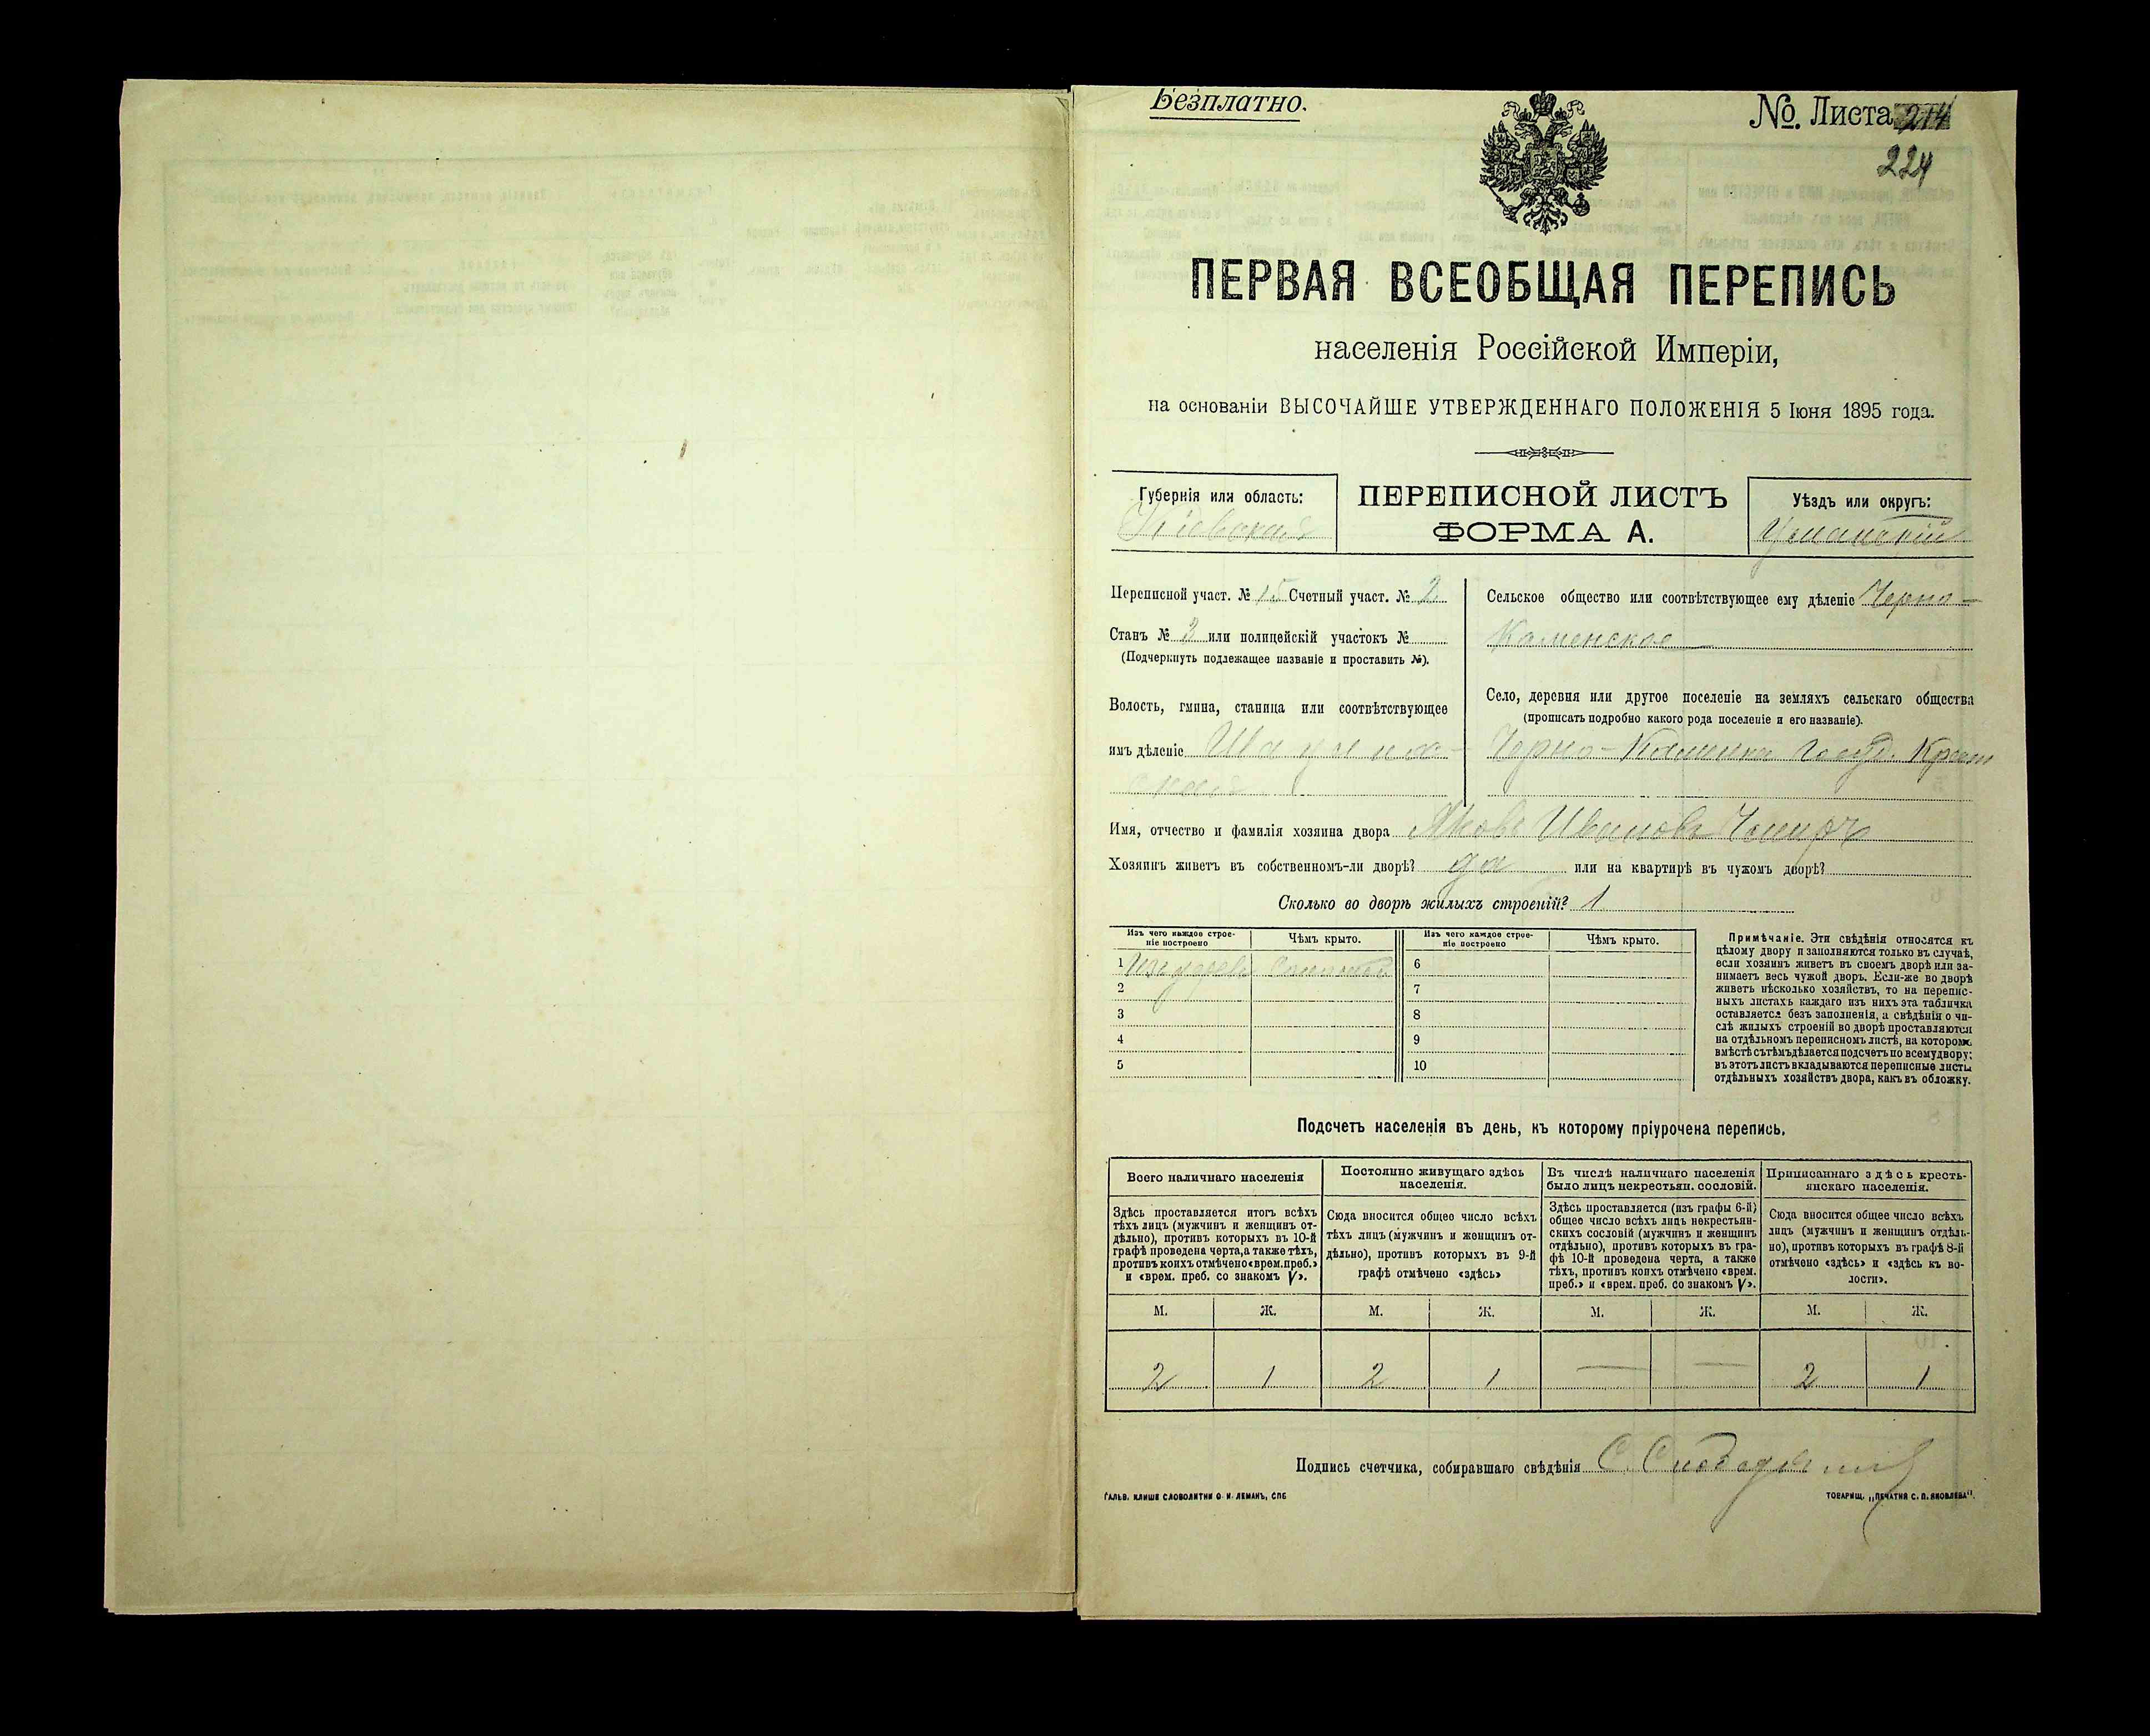 Безплатно.
№. Листа 214
224
ПЕРВАЯ ВСЕОБЩАЯ ПЕРЕПИСЬ
населенія Россійской Имперіи,
на основаніи ВЫСОЧАЙШЕ УТВЕРЖДЕННАГО ПОЛОЖЕНІЯ 5 Іюня 1895 года.
Губернія или область:
Кіевская
ПЕРЕПИСНОЙ ЛИСТЪ
ФОРМА А.
Уѣздъ или округъ:
Уманскій
Переписной участ. № 15 Счетный участ. № 2
Станъ № 3 или полицейскій участокъ №
(Подчеркнуть подлежащее названіе и проставить №).
Волость, гмина, станица или соотвѣтствующее
имъ дѣленіе
ская
Сельское общество или соотвѣтствующее ему дѣленіе Черно-
Каменское
Село, деревня или другое поселеніе на земляхъ сельскаго общества
(прописать подробно какого рода поселеніе и его названіе).
Черно-Каменка госуд. Крест
Имя, отчество и фамилія хозяина двора Яковъ Ивановъ
Хозяинъ живетъ въ собственномъ-ли дворѣ? да или на квартирѣ въ чужомъ дворѣ?
Сколько во дворѣ жилыхъ строеній? 1
Изъ чего каждое строе-
ніе построено
Чѣмъ крыто.
Изъ чего каждое строе-
ніе построено
Чѣмъ крыто.
1 Изъ дерева Соломою 6
2 7
3 8
4 9
5 10
Примѣчаніе. Эти свѣдѣнія относятся къ
цѣлому двору и заполняются только въ случаѣ,
если хозяинъ живетъ въ своемъ дворѣ или за-
нимаетъ весь чужой дворъ. Если-же во дворѣ
живетъ нѣсколько хозяйствъ, то на перепис-
ныхъ листахъ каждаго изъ нихъ эта табличка
оставляется безъ заполненія, а свѣдѣнія о чи-
слѣ жилыхъ строеній во дворѣ проставляются
на отдѣльномъ переписномъ листѣ, на которомъ
вмѣстѣ съ тѣмъ дѣлается подсчетъ по всему двору;
въ этотъ листъ вкладываются переписные листы
отдѣльныхъ хозяйствъ двора, какъ въ обложку.
Подсчетъ населенія въ день, къ которому пріурочена перепись.
Всего наличнаго населенія
Здѣсь проставляется итогъ всѣхъ
тѣхъ лицъ (мужчинъ и женщинъ от-
дѣльно), противъ которыхъ въ 10-й
графѣ проведена черта, а также тѣхъ,
противъ коихъ отмѣчено «врем. преб.»
и «врем. преб. со знакомъ V».
Постоянно живущаго здѣсь
населенія.
Сюда вносится общее число всѣхъ
тѣхъ лицъ (мужчинъ и женщинъ от-
дѣльно), противъ которыхъ въ 9-й
графѣ отмѣчено «здѣсь»
Въ числѣ наличнаго населенія
было лицъ некрестьян. сословій.
Здѣсь проставляется (изъ графы 6-й)
общее число всѣхъ лицъ некрестьян-
скихъ сословій (мужчинъ и женщинъ
отдѣльно), противъ которыхъ въ гра-
фѣ 10-й проведена черта, а также
тѣхъ, противъ коихъ отмѣчено «врем.
преб.» и «врем. преб. со знакомъ V».
Приписаннаго здѣсь кресть-
янскаго населенія.
Сюда вносится общее число всѣхъ
лицъ (мужчинъ и женщинъ отдѣль-
но), противъ которыхъ въ графѣ 8-й
отмѣчено «здѣсь» и «здѣсь къ во-
лости».
М. Ж. М. Ж. М. Ж. М. Ж.
2 1 2 1 — — 2 1
Подпись счетчика, собиравшаго свѣдѣнія С.
ГАЛЬВ. КЛИШЕ СЛОВОЛИТНИ О. И. ЛЕМАНЪ, СПБ
ТОВАРИЩ. „ПЕЧАТНЯ С. П. ЯКОВЛЕВА".